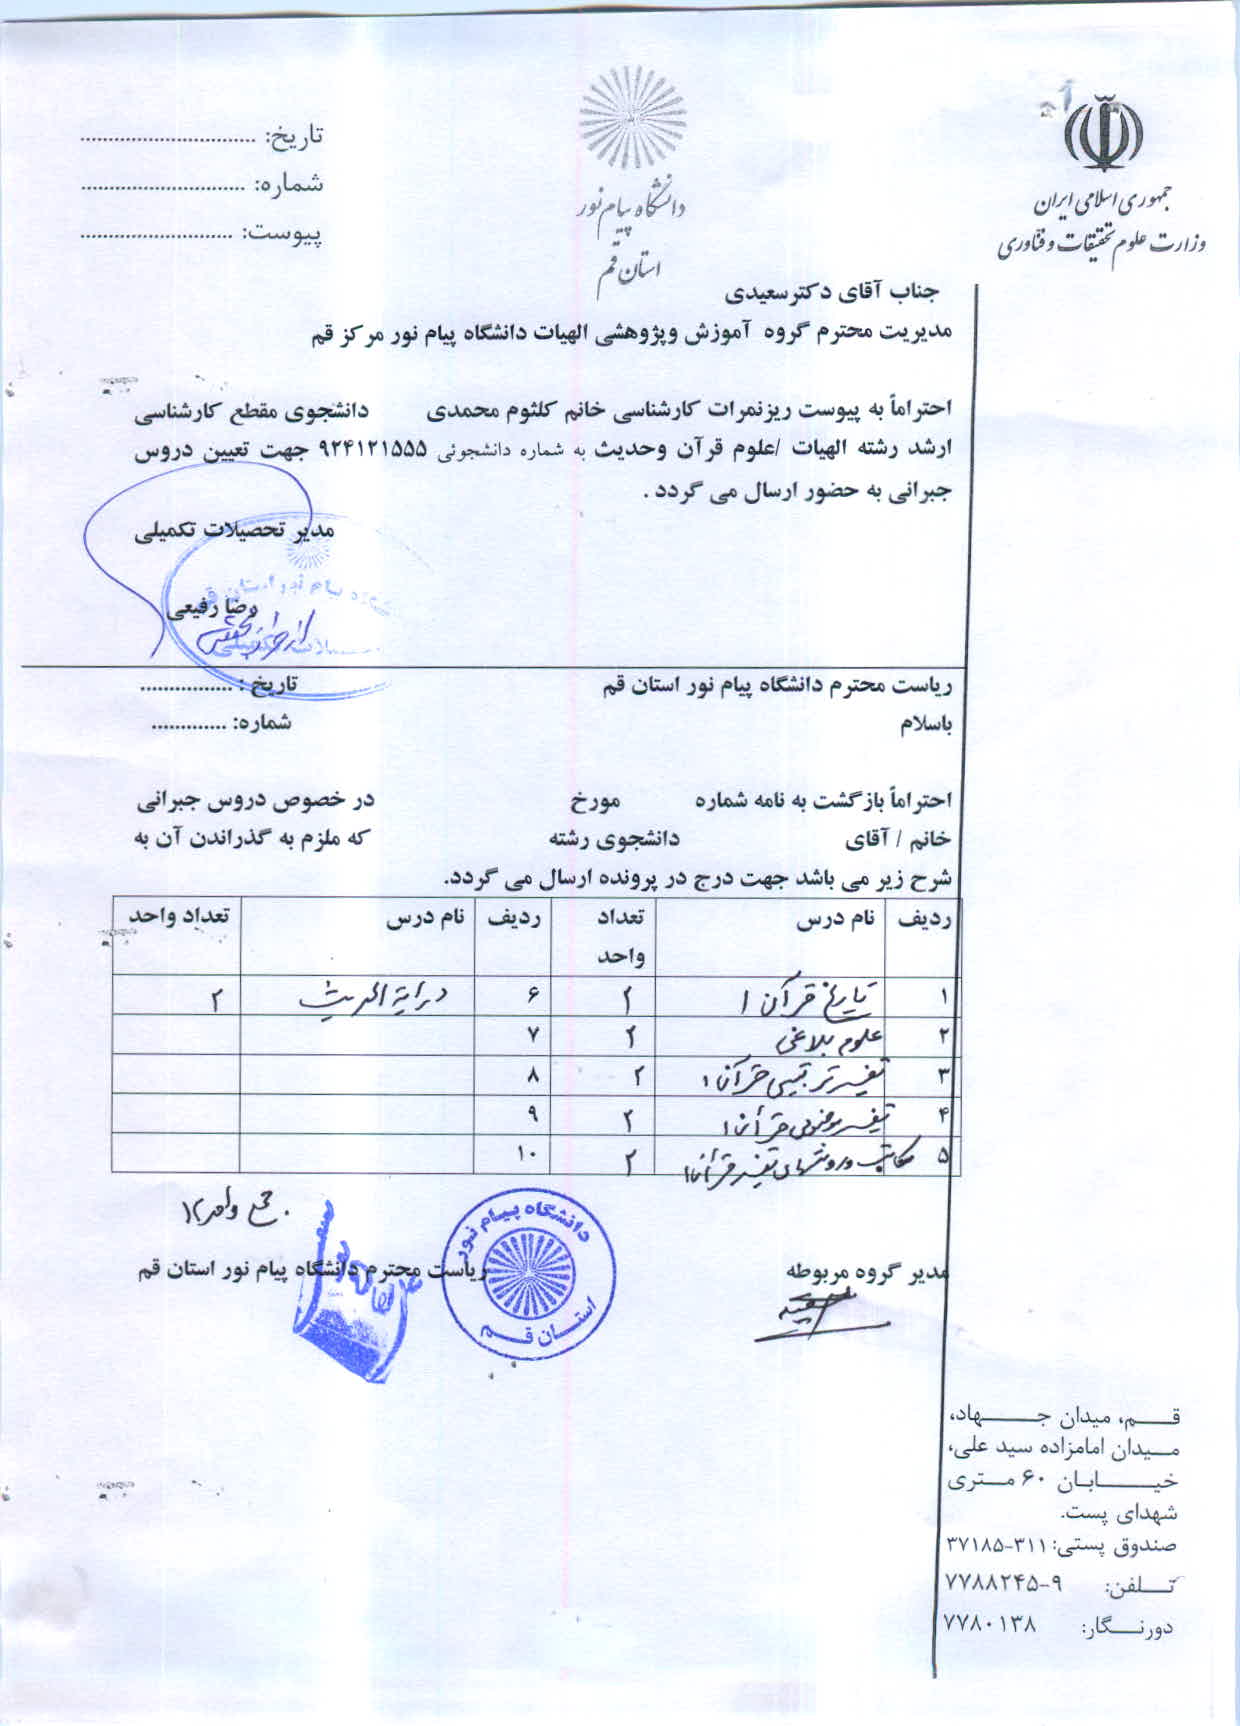 جمهوری اسلامی ایران
وزارت علوم تحقیقات و فناوری
دانشگاه پیام نور
استان قم
تاریخ: ..............................
شماره: ............................
پیوست: ..........................
جناب آقای دکترسعیدی
مدیریت محترم گروه آموزش وپژوهشی الهیات دانشگاه پیام نور مرکز قم
احتراماً به پیوست ریزنمرات کارشناسی خانم کلثوم محمدی دانشجوی مقطع کارشناسی
ارشد رشته الهیات /علوم قرآن وحدیث به شماره دانشجوئی ۹۲۴۱۲۱۵۵۵ جهت تعیین دروس
جبرانی به حضور ارسال می گردد .
مدیر تحصیلات تکمیلی
رضا رفیعی
ریاست محترم دانشگاه پیام نور استان قم تاریخ : ................
باسلام شماره: .............
احتراماً بازگشت به نامه شماره مورخ در خصوص دروس جبرانی
خانم / آقای دانشجوی رشته که ملزم به گذراندن آن به
شرح زیر می باشد جهت درج در پرونده ارسال می گردد.
ردیف نام درس تعداد واحد ردیف نام درس تعداد واحد
۱ تاریخ قرآن ۱ ۲ ۶ درایة الحدیث ۲
۲ علوم بلاغی ۲ ۷
۳ تفسیر ترتیبی قرآن ۱ ۲ ۸
۴ تفسیر موضوعی قرآن ۱ ۲ ۹
۵ مکاتب و روشهای تفسیر قرآن ۱ ۲ ۱۰
جمع واحد ۱۲
مدیر گروه مربوطه ریاست محترم دانشگاه پیام نور استان قم
دانشگاه پیام نور
استان قم
قم، میدان جهاد،
میدان امامزاده سید علی،
خیابان ۶۰ متری
شهدای پست.
صندوق پستی: ۳۱۱-۳۷۱۸۵
تلفن: ۹-۷۷۸۸۲۴۵
دورنگار: ۷۷۸۰۱۳۸